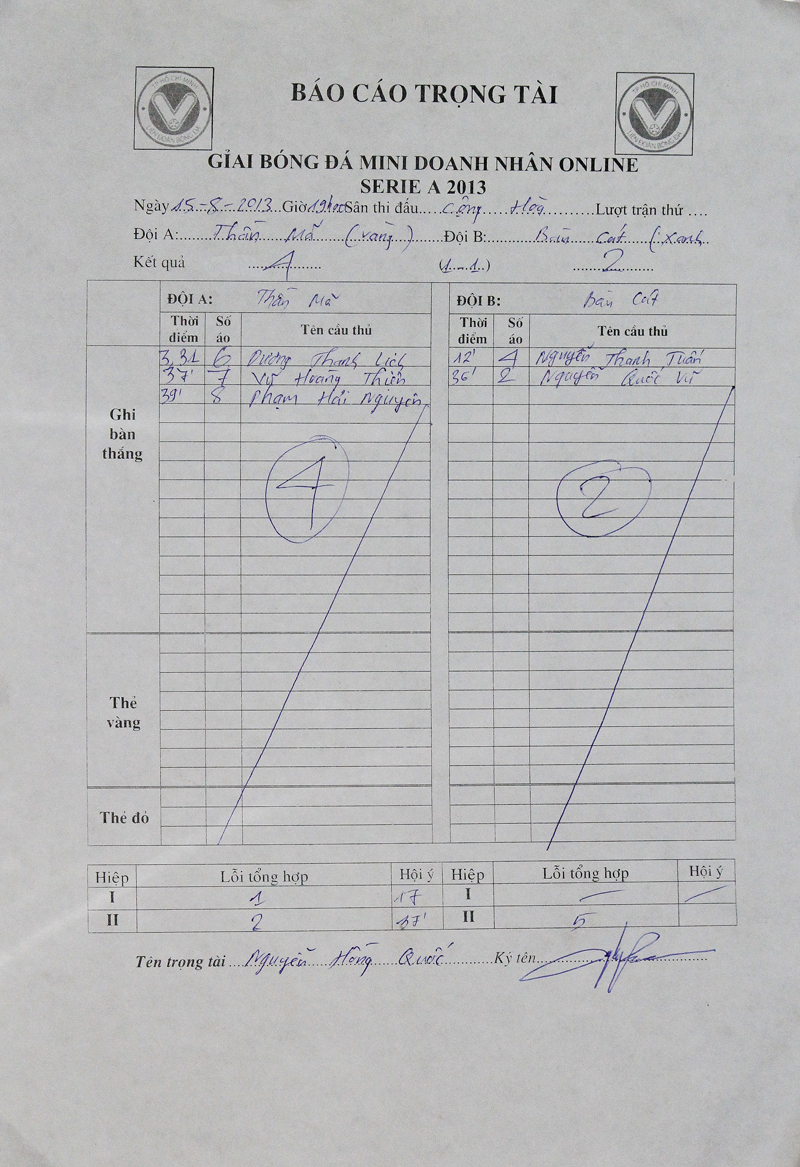 TP HỒ CHÍ MINH
LIÊN ĐOÀN BÓNG ĐÁ
BÁO CÁO TRỌNG TÀI
TP HỒ CHÍ MINH
LIÊN ĐOÀN BÓNG ĐÁ
GIẢI BÓNG ĐÁ MINI DOANH NHÂN ONLINE
SERIE A 2013
Ngày 15-8-2013 Giờ 19h00 Sân thi đấu.... Cộng Hoà ..........Lượt trận thứ ....
Đội A: Thần Mã (vàng) Đội B: Bàn Cat (Xanh
Kết quả 4 (1...1..) 2
ĐỘI A: Thần Mã ĐỘI B: Bàn Cat
Thời điểm Số áo Tên cầu thủ Thời điểm Số áo Tên cầu thủ
Ghi bàn thắng
3, 31 6 Dương Thanh Lịch 12' 4 Nguyễn Thanh Tuấn
37' 7 Vũ Hoàng Thiên 36' 2 Nguyễn Quốc Vũ
39' 8 Phạm Hải Nguyên
4 2
Thẻ vàng
Thẻ đỏ
Hiệp Lỗi tổng hợp Hội ý Hiệp Lỗi tổng hợp Hội ý
I 1 17 I — —
II 2 37' II 5
Tên trọng tài Nguyễn Hồng Quốc Ký tên